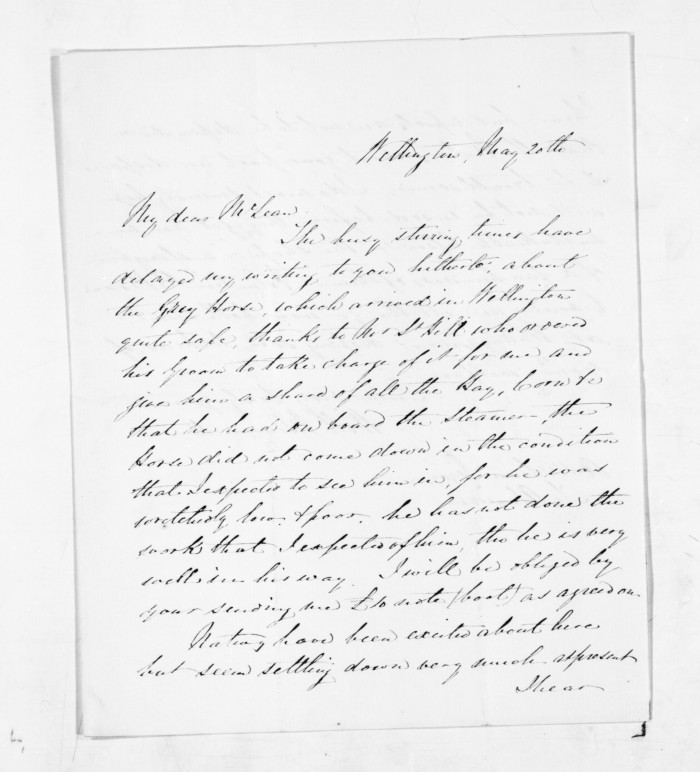 Wellington, May 20th
My dear McLean.
The busy stirring times have
delayed my writing to you hitherto, about
the Grey Horse, which arrived in Wellington
quite safe, thanks to Mr St Hill who ordered
his Groom to take charge of it for me and
give him a share of all the Hay, Corn &c
that he had on board the Steamer, the
Horse did not come down in the condition
that I expected to see him in, for he was
wretchedly low & poor. he has not done the
work that I expected of him, tho he is very
well in his way. I will be obliged by
your sending me £10 note (boot) as agreed on.
Natives have been excited about here
but seem settling down very much at present
I hear